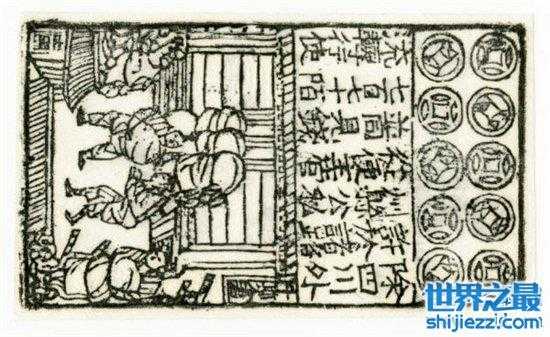 除四川外
許於諸路
州縣公私
從便主管
並同見錢
七百七十陌
流轉行使
世界之最
shijiezzi.com